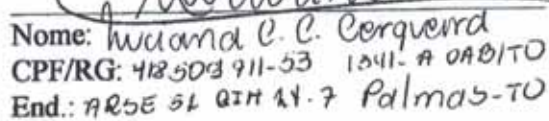 Nome: Luciana C. C. Cerqueira
CPF/RG: 418509911-53 1341-A OAB/TO
End.: ARSE 51 QIH 7 Palmas-TO